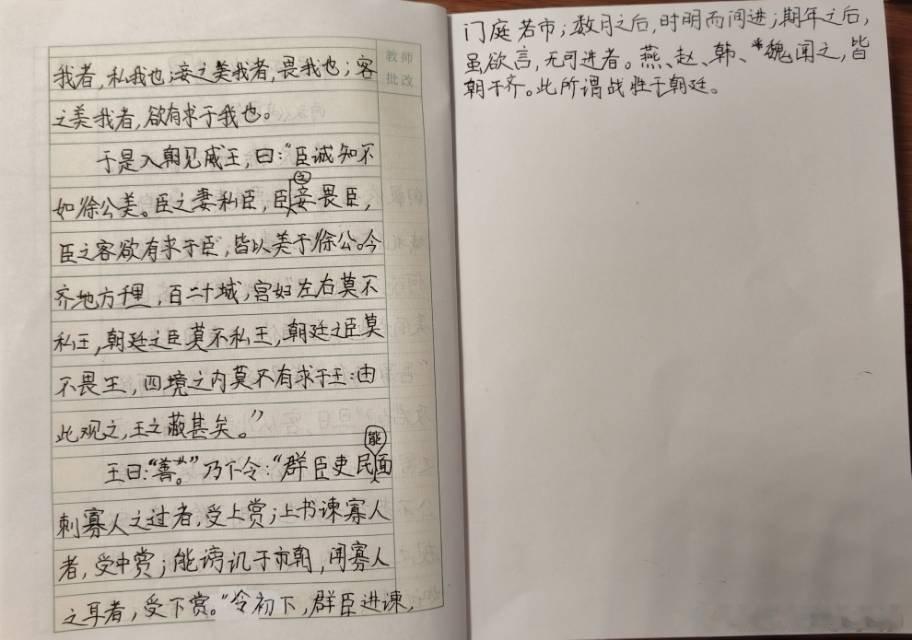 教师
批改
我者，私我也；妾之美我者，畏我也；客
之美我者，欲有求于我也。
于是入朝见威王，曰：“臣诚知不
如徐公美。臣之妻私臣，臣之妾畏臣，
臣之客欲有求于臣，皆以美于徐公。今
齐地方千里，百二十城，宫妇左右莫不
私王，朝廷之臣莫不私王，朝廷之臣莫
不畏王，四境之内莫不有求于王：由
此观之，王之蔽甚矣。”
王曰：“善。”乃下令：“群臣吏民能面
刺寡人之过者，受上赏；上书谏寡人
者，受中赏；能谤讥于市朝，闻寡人
之耳者，受下赏。”令初下，群臣进谏，
门庭若市；数月之后，时时而间进；期年之后，
虽欲言，无可进者。燕、赵、韩、魏闻之，皆
朝于齐。此所谓战胜于朝廷。